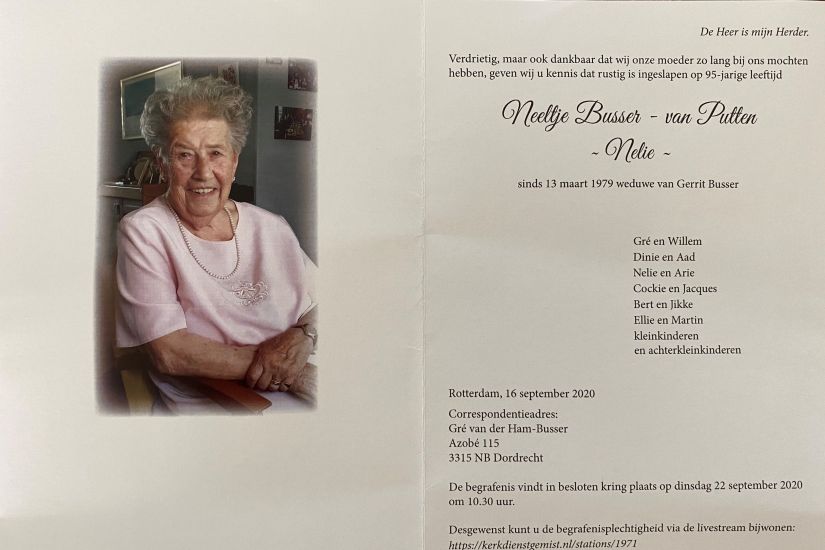 De Heer is mijn Herder.
Verdrietig, maar ook dankbaar dat wij onze moeder zo lang bij ons mochten
hebben, geven wij u kennis dat rustig is ingeslapen op 95-jarige leeftijd
Neeltje Busser - van Putten
~ Nelie ~
sinds 13 maart 1979 weduwe van Gerrit Busser
Gré en Willem
Dinie en Aad
Nelie en Arie
Cockie en Jacques
Bert en Jikke
Ellie en Martin
kleinkinderen
en achterkleinkinderen
Rotterdam, 16 september 2020
Correspondentieadres:
Gré van der Ham-Busser
Azobé 115
3315 NB Dordrecht
De begrafenis vindt in besloten kring plaats op dinsdag 22 september 2020
om 10.30 uur.
Desgewenst kunt u de begrafenisplechtigheid via de livestream bijwonen:
https://kerkdienstgemist.nl/stations/1971